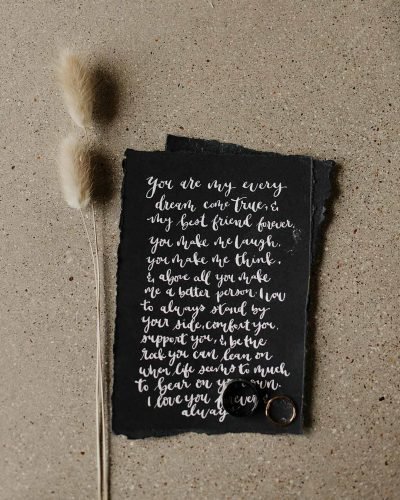 You are my every
dream come true, &
my best friend forever.
you make me laugh.
you make me think.
& above all you make
me a better person. I vow
to always stand by
your side, comfort you,
support you, & be the
rock you can lean on
when life seems to much
to bear on own.
I love you &